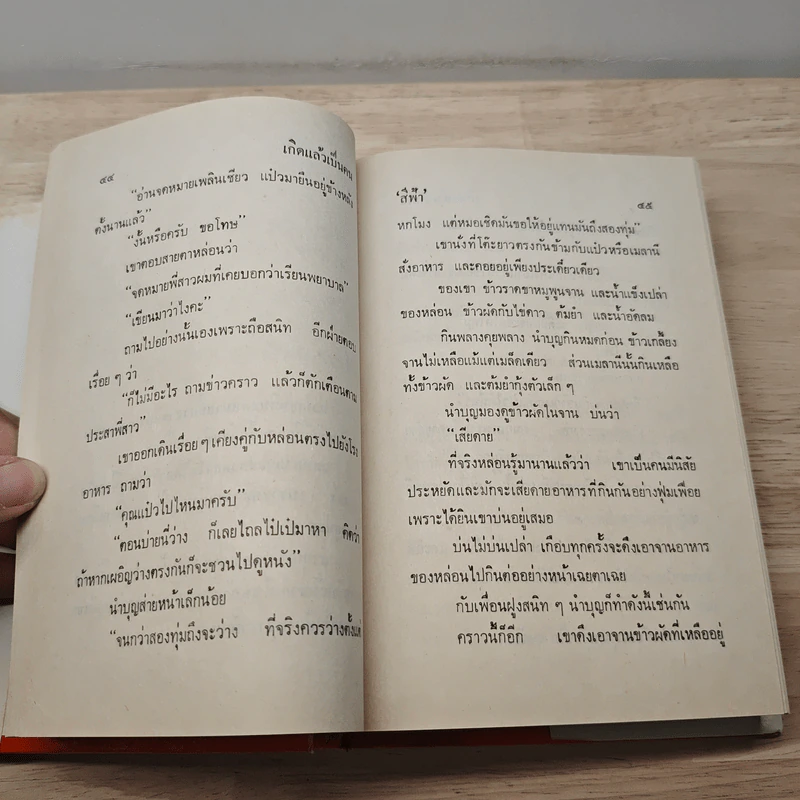 ๔๔
เกิดแล้วเป็นคน
“อ่านจดหมายเพลินเชียว แป๋วมายืนอยู่ข้างหลัง
ตั้งนานแล้ว”
“งั้นหรือครับ ขอโทษ”
เขาตอบสายตาหล่อนว่า
“จดหมายพี่สาวผมที่เคยบอกว่าเรียนพยาบาล”
“เขียนมาว่าไงคะ”
ถามไปอย่างนั้นเองเพราะถือสนิท อีกฝ่ายตอบ
เรื่อย ๆ ว่า
“ก็ไม่มีอะไร ถามข่าวคราว แล้วก็ตักเตือนตาม
ประสาพี่สาว”
เขาออกเดินเรื่อย ๆ เคียงคู่กับหล่อนตรงไปยังโรง
อาหาร ถามว่า
“คุณแป๋วไปไหนมาครับ”
“ตอนบ่ายนี่ว่าง ก็เลยไถลไป๋เป๋มาหา คิดว่า
ถ้าหากเผอิญว่างตรงกันก็จะชวนไปดูหนัง”
นำบุญส่ายหน้าเล็กน้อย
“จนกว่าสองทุ่มถึงจะว่าง ที่จริงควรว่างตั้งแต่
‘สีฟ้า’
๔๕
หกโมง แต่หมอเชิดมันขอให้อยู่แทนมันถึงสองทุ่ม”
เขานั่งที่โต๊ะยาวตรงกันข้ามกับแป๋วหรือเมลานี
สั่งอาหาร และคอยอยู่เพียงประเดี๋ยวเดียว
ของเขา ข้าวราดขาหมูพูนจาน และน้ำแข็งเปล่า
ของหล่อน ข้าวผัดกับไข่ดาว ต้มยำ และน้ำอัดลม
กินพลางคุยพลาง นำบุญกินหมดก่อน ข้าวเกลี้ยง
จานไม่เหลือแม้แต่เมล็ดเดียว ส่วนเมลานีนั้นกินเหลือ
ทั้งข้าวผัด และต้มยำกุ้งตัวเล็ก ๆ
นำบุญมองดูข้าวผัดในจาน บ่นว่า
“เสียดาย”
ที่จริงหล่อนรู้มานานแล้วว่า เขาเป็นคนมีนิสัย
ประหยัดและมักจะเสียดายอาหารที่กินกันอย่างฟุ่มเฟือย
เพราะได้ยินเขาบ่นอยู่เสมอ
บ่นไม่บ่นเปล่า เกือบทุกครั้งจะดึงเอาจานอาหาร
ของหล่อนไปกินต่ออย่างหน้าเฉยตาเฉย
กับเพื่อนฝูงสนิท ๆ นำบุญก็ทำดังนี้เช่นกัน
คราวนี้ก็อีก เขาดึงเอาจานข้าวผัดที่เหลืออยู่